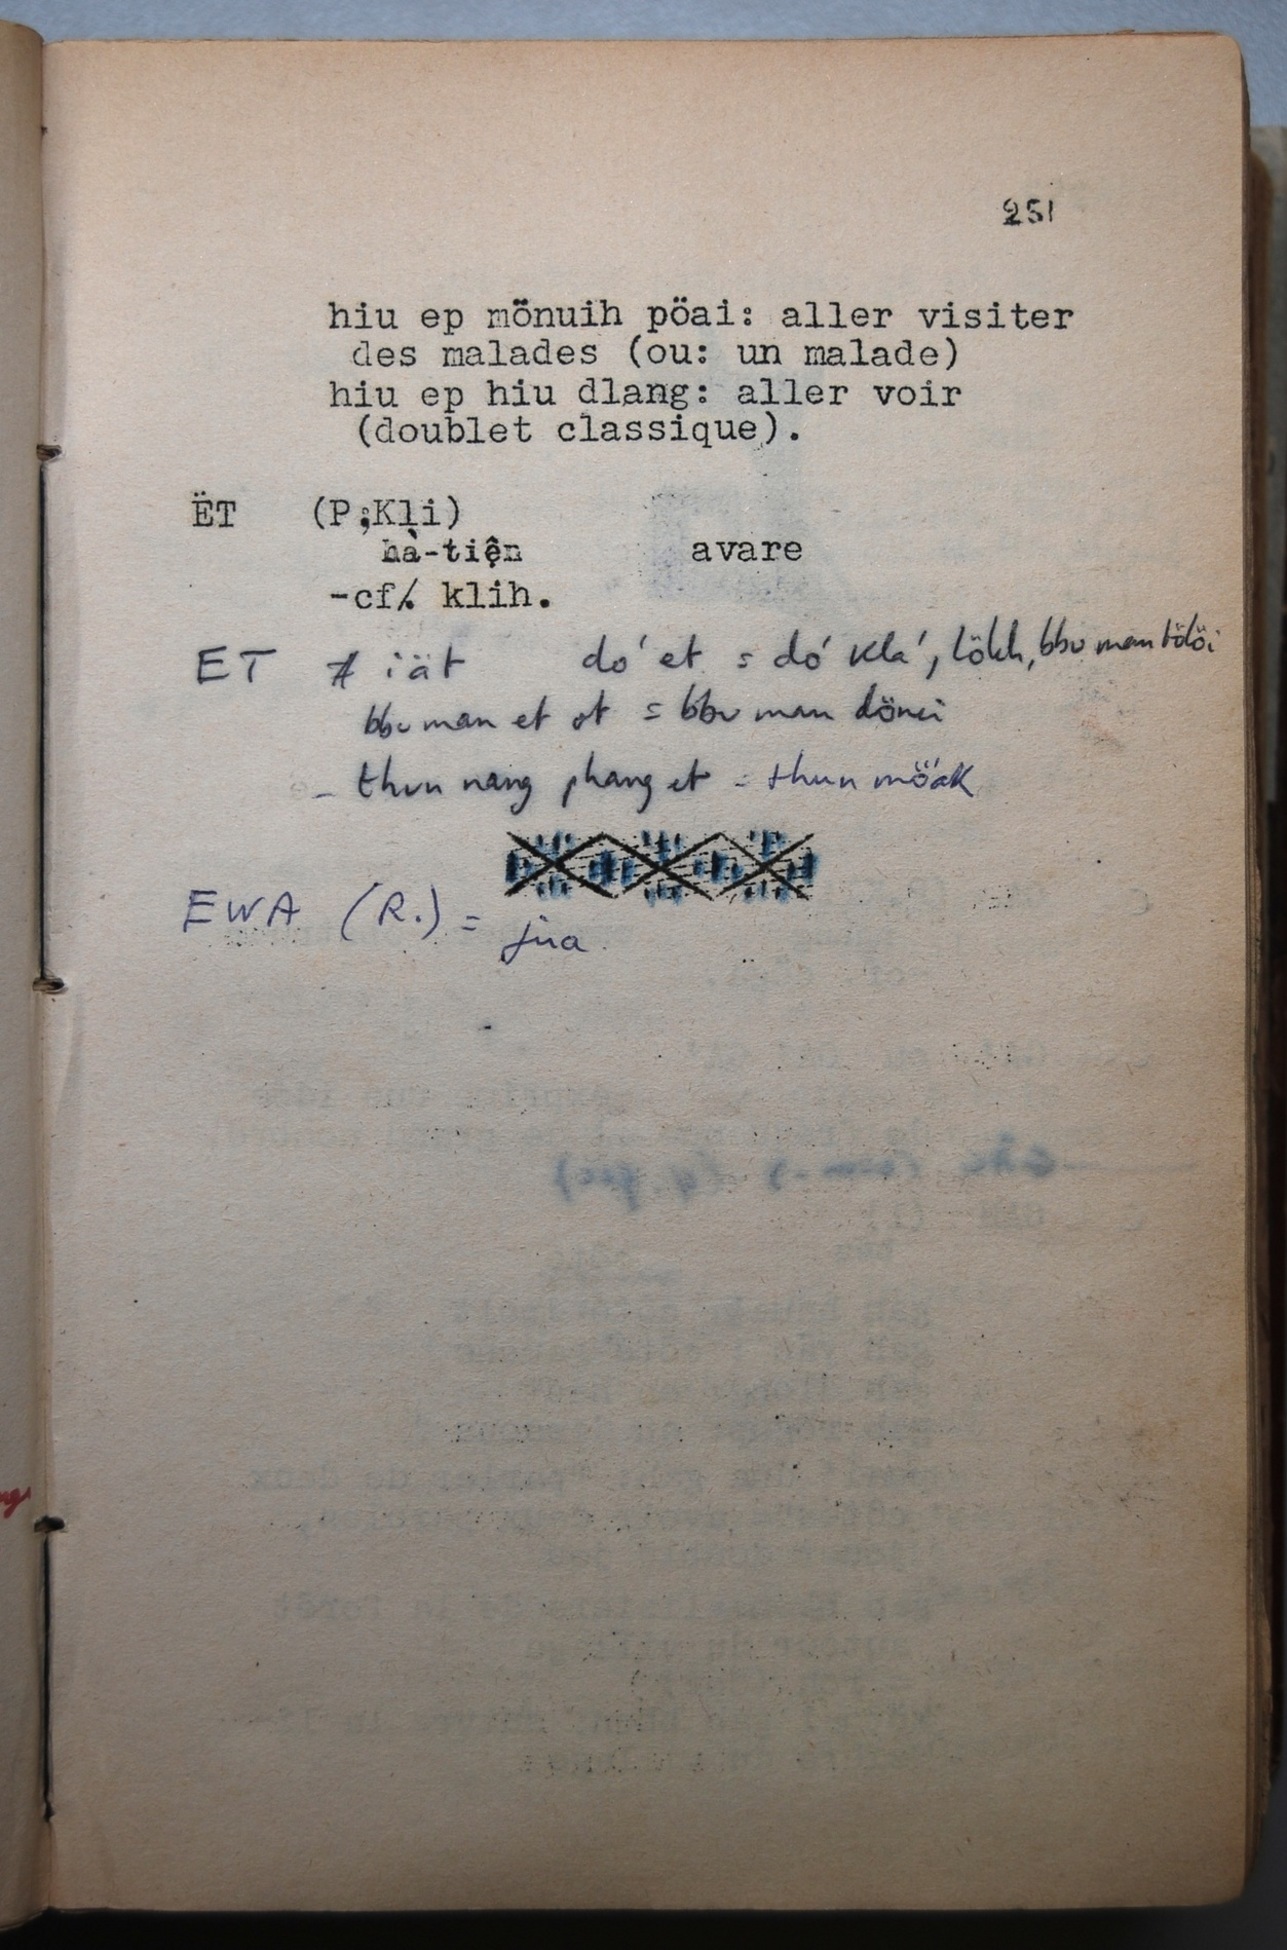 251
hiu ep mönuih pöai: aller visiter
des malades (ou: un malade)
hiu ep hiu dlang: aller voir
(doublet classique).
ËT (P;Kli)
hà-tiện avare
-cf/. klih.
ET ≠ iät dó et = dó klá, lökh, bbu man tölöi
bbu man et ot = bbu man dönei
- thun nang phang et = thun möak
EWA (R.) = jua